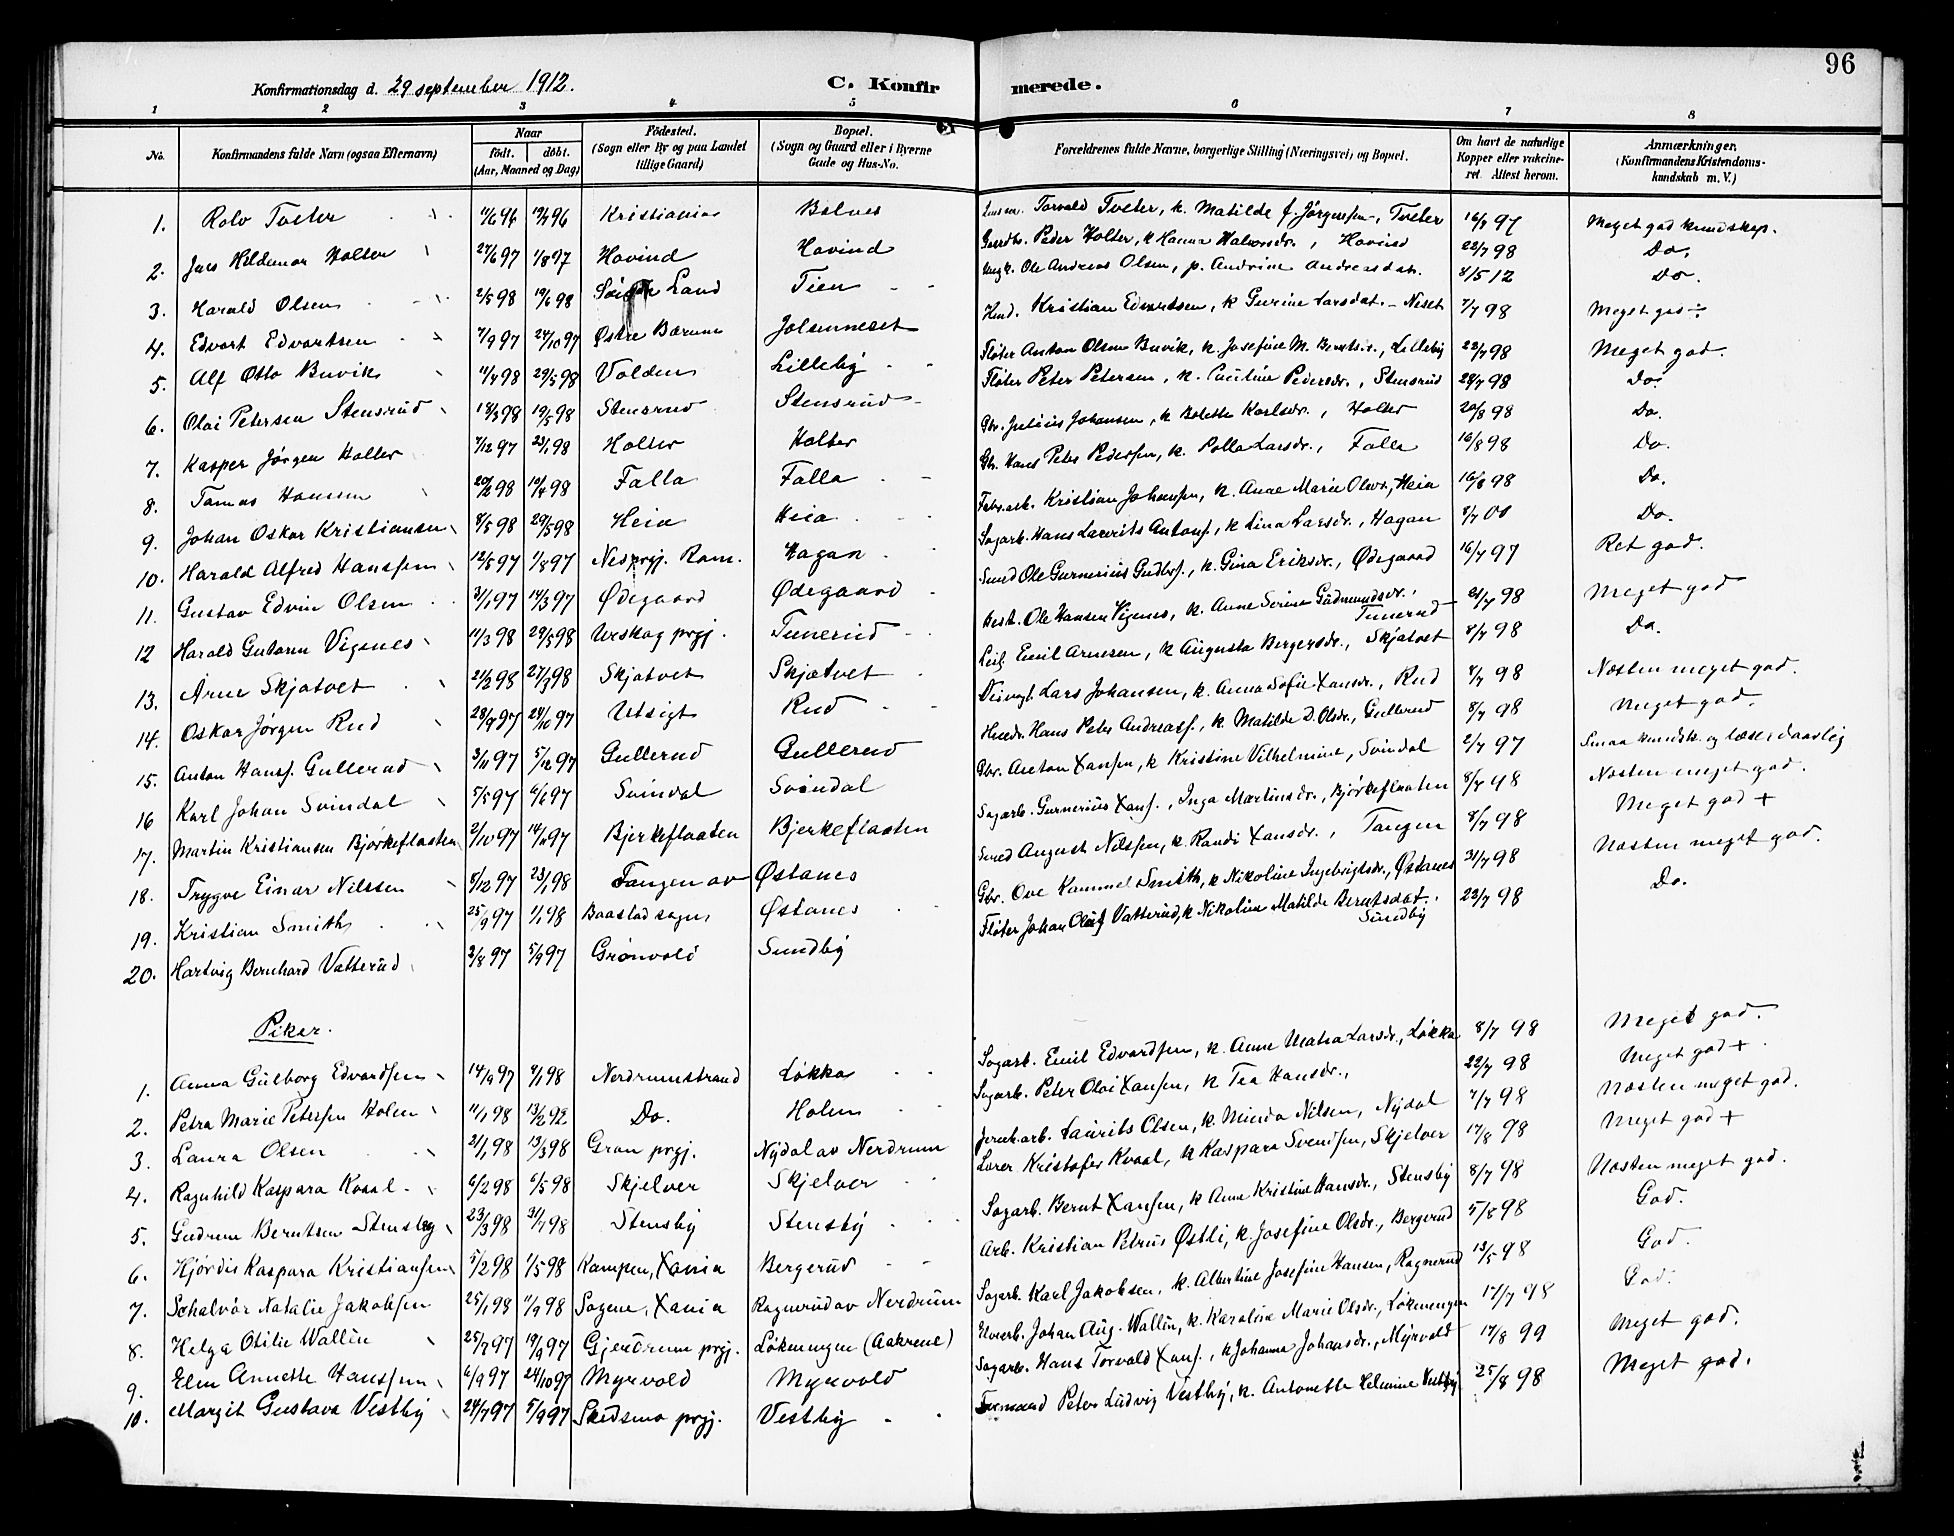 96
Konfirmationsdag d. 29 september 1912.
C. Konfirmerede.
1 2 3 4 5 6 7 8
No. Konfirmandens fulde Navn (ogsaa Efternavn) Naar født. døbt. (Aar, Maaned og Dag) Fødested. (Sogn eller By og paa Landet tillige Gaard) Bopæl. (Sogn og Gaard eller i Byerne Gade og Hus-No. Forældrenes fulde Navne, borgerlige Stilling (Næringsvei) og Bopæl. Om havt de naturlige Kopper eller vakcineret. Attest herom. Anmærkninger. (Konfirmandens Kristendomskundskab m. V.)
1. Rolv Tveter 11/6 96 19/7 96 Kristiania Torvald Tveter, k. Matilde f. Jørgenssen, Tveter 16/7 97 Meget god kundskap.
2. Jens Hildemar Holter 27/6 97 1/8 97 Hovind Hovind Peder Holter, k Hanna Halvorsdr., Hovind 22/7 98 Do.
3. Harald Olsen 2/5 98 19/6 98 Land Tien Ole Andreas Olsen, p. Andrine Andreasdatr. 8/5 12 Do.
4. Edvart Edvartsen 7/9 97 24/10 97 Østre Bærum Jolsenneset Kristian Edvartsen, k Gurine Larsdat. - Neset 7/7 98 Meget god ÷
5. Alf Otto Buvik 11/4 98 29/5 98 Volden Lilleby Fløter Anton Olsen Buvik, k. Josefine M. Berntsdr., Lilleby 22/7 98 Meget god.
6. Olai Petersen Stensrud 18/3 98 19/5 98 Stensrud Stensrud Fløter Peter Petersen, k. Pedersdr., Stensrud 28/7 98 Do.
7. Kasper Jørgen Holter 7/12 97 23/1 98 Holter Holter Gbr. Julius Johansen, k Bolette Karlsdr., Holter 20/8 98 Do.
8. Tomas Hansen 20/2 98 10/4 98 Falla Falla Gbr. Hans Peter Pedersen, k. Larsdr., Falla 16/8 98 Do.
9. Johan Oskar Kristiansen 8/5 98 29/5 98 Heia Heia Fabr.arb. Kristian Johansen, k. Anne Marie Olsdr., Heia 16/8 98 Do.
10. Harald Alfred Hanssen 12/5 97 1/8 97 Nes prgj. Rom. Hagan Sagarb. Hans Laurits Antons., k Lina Larsdr., Hagan 8/7 00 Do.
11. Gustav Edvin Olsen 31/1 97 14/3 97 Ødegaard Ødegaard Smed Ole Gunerius Gudbr., k. Gina Eriksdr., Ødegaard 16/7 97 Ret god.
12 Harald Gutorm Vigenes 11/3 98 29/5 98 Urskog prgj. Tunerud Best. Ole Hansen Vigenes, k. Anne Serine Gudmundsdr., Tunerud 21/7 98 Meget god
13. Arne Skjatvet 21/2 98 27/3 98 Skjatvet Skjatvet Emil Arnesen, k Augusta Bergersdr., Skjatvet 8/7 98 Do.
14. Oskar Jørgen Rud 28/9 97 24/10 97 Utsigt Rud Veivogt. Lars Johansen, k. Anna Sofie Xansdr., Rud 8/7 98 Næsten meget god.
15. Anton Hansf. Gullerud 3/11 97 5/12 97 Gullerud Gullerud Hans Peter Andreasf., k. Matilde D. Olsdr., Gullerud 8/7 98 Meget god.
16 Karl Johan Svindal 5/5 97 6/6 97 Svindal Svindal Gbr. Anton Xansen, k Kristine Vilhelmine, Svindal 2/7 97 Smaa kundsk. og læser daarlig
17. Martin Kristiansen Bjørkeflaaten 2/10 97 14/11 97 Bjerkeflaaten Bjerkeflaaten Sagarb. Gunerius Xansf., Inga Martinsdr., Bjørkeflaaten 8/7 98 Næsten meget god.
18. Trygve Einar Nilssen 8/12 97 23/1 98 Tangen av Østanes Smed August Nilssen, k. Randi Xansdr., Tangen 8/7 98 Meget god +
19. Kristian Smith 25/9 97 1/1 98 Baastad sogn, Østanes Gbr. Ove Kammel Smith, k Nikoline Ingebrigtsdr., Østanes 31/7 98 Næsten meget god.
20. Hartvig Bernhard Vatterud 2/8 97 5/9 97 Grønvold Sundby Fløter Johan Oluf Vatterud, k Nikoline Matilde Berntsdat. Sundby 22/7 98 Do.
Piker.
1. Anna Gulborg Edvardsen 14/9 97 9/1 98 Nordrumstrand Løkka Sagarb. Emil Edvardsen, k. Anne Matea Larsdr., Løkka 8/7 98 Meget god.
2. Petra Marie Petersen Holen 11/1 98 13/2 92 Do. Holen Sagarb. Peter Olai Xansen, k Tea Hansdr., 22/7 98 Meget god +
3. Laura Olsen 21/1 98 13/3 98 Gran prgj. Nydal av Nerdrum Jernb.arb. Laurits Olsen, k. Minda Nilsen, Nydal 7/7 98 Næsten meget god.
4. Ragnhild Kaspara Kvaal 6/2 98 6/5 98 Skjelver Skjelver Lærer Kristofer Kvaal, k Kaspara Svendsen, Skjelver 17/8 98 Meget god +
5. Gudrun Berntsen Stensby 23/3 98 31/7 98 Stensby Stensby Sagarb. Bernt Xansen, k Anne Kristine Hansdr., Stensby 8/7 98 Næsten meget god.
6. Hjørdis Kaspara Kristiansen 5/2 98 1/5 98 Kampen, Xania Bergerud Arb. Kristian Petrus Østli, k. Josefine Olsdr., Bergerud 5/8 98 God.
7. Solvår Natalie Jakobsen 25/1 98 11/9 98 Sagene, Xania Ragnerud av Nerdrum Sagarb. Karl Jakobsen, k. Albertine Josefine Hansen, Ragnerud 13/5 98 God.
8. Helga Otilie Wallin 25/7 97 19/9 97 Gjerdrum prgj. Løkenengen (Aakrene) Johan Aug. Wallin, k. Karoline Marie Olsdr., Løkenengen 17/7 98 God.
9. Elen Annette Hanssen 6/9 97 24/10 97 Myrvold Myrvold Sagarb. Hans Torvald Xansf., k Johanna Johansdr., Myrvold 17/8 99 Meget god.
10. Margit Gustava Vestby 24/7 97 5/9 97 Skedsmo prgj. Vestby Formand Peter Ludvig Vestby, k. Antonette Helmine Vestby 25/8 98 Meget god.